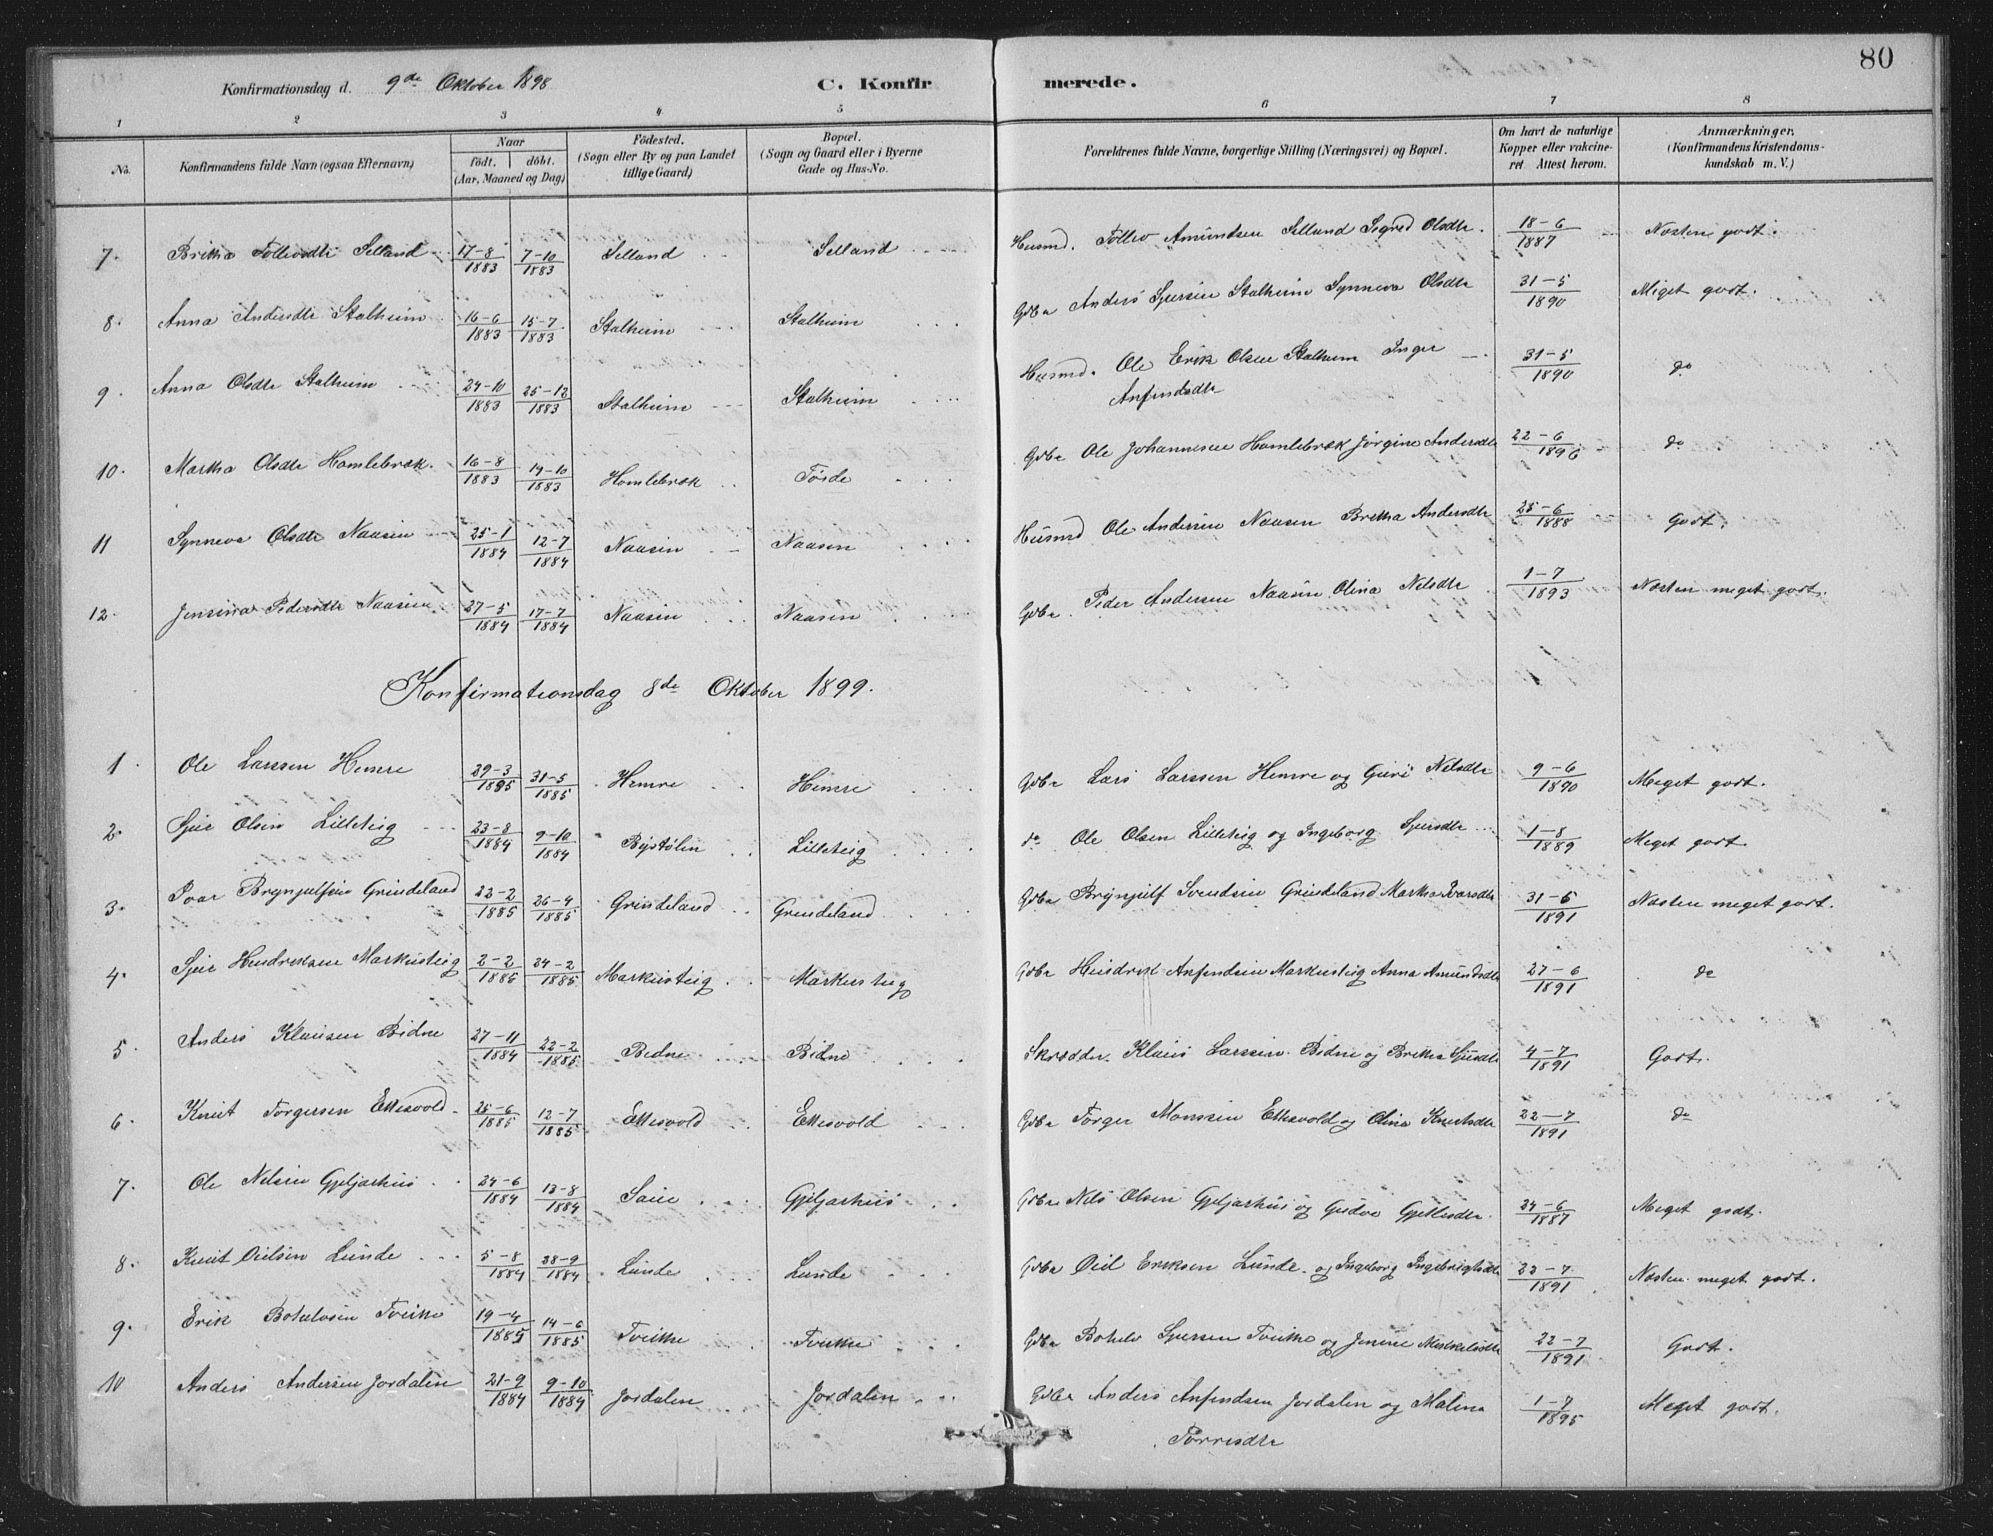 80
Konfirmationsdag d. 9de Oktober 1898 C. Konfirmerede.
1 2 3 4 5 6 7 8
No. Konfirmandens fulde Navn (ogsaa Efternavn) Naar født. døbt. (Aar, Maaned og Dag) Fødested. (Sogn eller By og paa Landet tillige Gaard) Bopæl. (Sogn og Gaard eller i Byerne Gade og Hus-No. Forældrenes fulde Navne, borgerlige Stilling (Næringsvei) og Bopæl. Om havt de naturlige Kopper eller vakcineret Attest herom. Anmærkninger. (Konfirmandens Kristendomskundskab m. V.)
7. Britha Tollevsdtr Selland 17-8 1883 7-10 1883 Selland Selland Husmd. Tollev Amundsen Selland Sigrid Olsdtr. 18-6 1887 Næsten godt.
8. Anna Andersdtr Stalheim 16-6 1883 15-7 1883 Stalheim Stalheim Gdbr Anders Sjursen Stalheim Synneva Olsdtr 31-5 1890 Meget godt.
9. Anna Olsdtr Stalheim 24-10 1883 25-12 1883 Stalheim Stalheim Husmd. Ole Erik Olsen Stalheim Inger Anfindsdtr 31-5 1890 do
10. Martha Olsdtr Homlebræk. 16-8 1883 14-10 1883 Homlebræk Tøsde Gdbr Ole Johannesen Homlebræk Jørgine Andersdtr 22-6 1896 do
11 Synneva Olsdtr Naasen 25-1 1884 12-7 1884 Naasen Naasen Husmd Ole Andersen Naasen Britha Andersdtr 25-6 1888 Godt.
12. Jensina Pedersdtr Naasen 27-5 1884 17-7 1884 Naasen Naasen Gdbr Peder Andersen Naasen Olina Nilsdtr 1-7 1893 Næsten meget godt.
Konfirmationsdag 8de Oktober 1899.
1. Ole Larssen Hemre 29-3 1885 31-5 1885 Hemre Hemre Gdbr Lars Larssen Hemre og Guri Nilsdtr 9-6 1890 Meget godt.
2. Sjur Olsen Lilleteig 23-8 1884 9-10 1884 Byrstølen Lilleteig do Ole Olsen Lilleteig og Ingeborg Sjursdtr 1-8 1889 Meget godt.
3. Ivar Brynjulfsen Grindeland 22-2 1885 26-4 1885 Grindeland Grindeland Gdbr Brynjulf Svendsen Grindeland Martha Ivarsdtr 31-5 1891 Næsten meget godt.
4. Sjur Hendriksen Markusteig 2-2 1885 24-2 1885 Markusteig Markusteig Gdbr Hendrik Anfindsen Markusteig Anna Amundsdtr 27-6 1891 do
5. Anders Klausen Bidne 27-11 1884 22-2 1885 Bidne Bidne Skrædder Klaus Larssen Bidne og Britha Sjursdtr 4-7 1891 Godt.
6. Knut Torgersen Ettesvold 25-6 1885 12-7 1885 Ettesvold Ettesvold Gdbr Torger Monssen Ettesvold og Olina Knutsdtr 22-7 1891 do
7. Ole Nelsen Gjeljarhus 24-6 1884 13-8 1884 Saue Gjeljarhus Gdbr Nils Olsen Gjeljarhus og Gudve Gjetlesdtr. 24-6 1887 Meget godt.
8. Knut Oddsen Lunde 5-8 1884 28-9 1884 Lunde Lunde Gdbr Odd Eriksen Lunde og Ingeborg Ingebrigtsdtr 22-7 1891 Næsten meget godt.
9. Erik Botolvsen Tvinne 19-4 1885 14-6 1885 Tvinne Tvinne Gdbr Botolv Sjursen Tvinne og Jenine Mikkelsdtr 22-7 1891 Godt.
10 Anders Andersen Jordalen 21-9 1884 9-10 1884 Jordalen Jordalen Gdbr Anders Anfindsen Jordalen og Malena Torresdtr 1-7 1895 Meget godt.